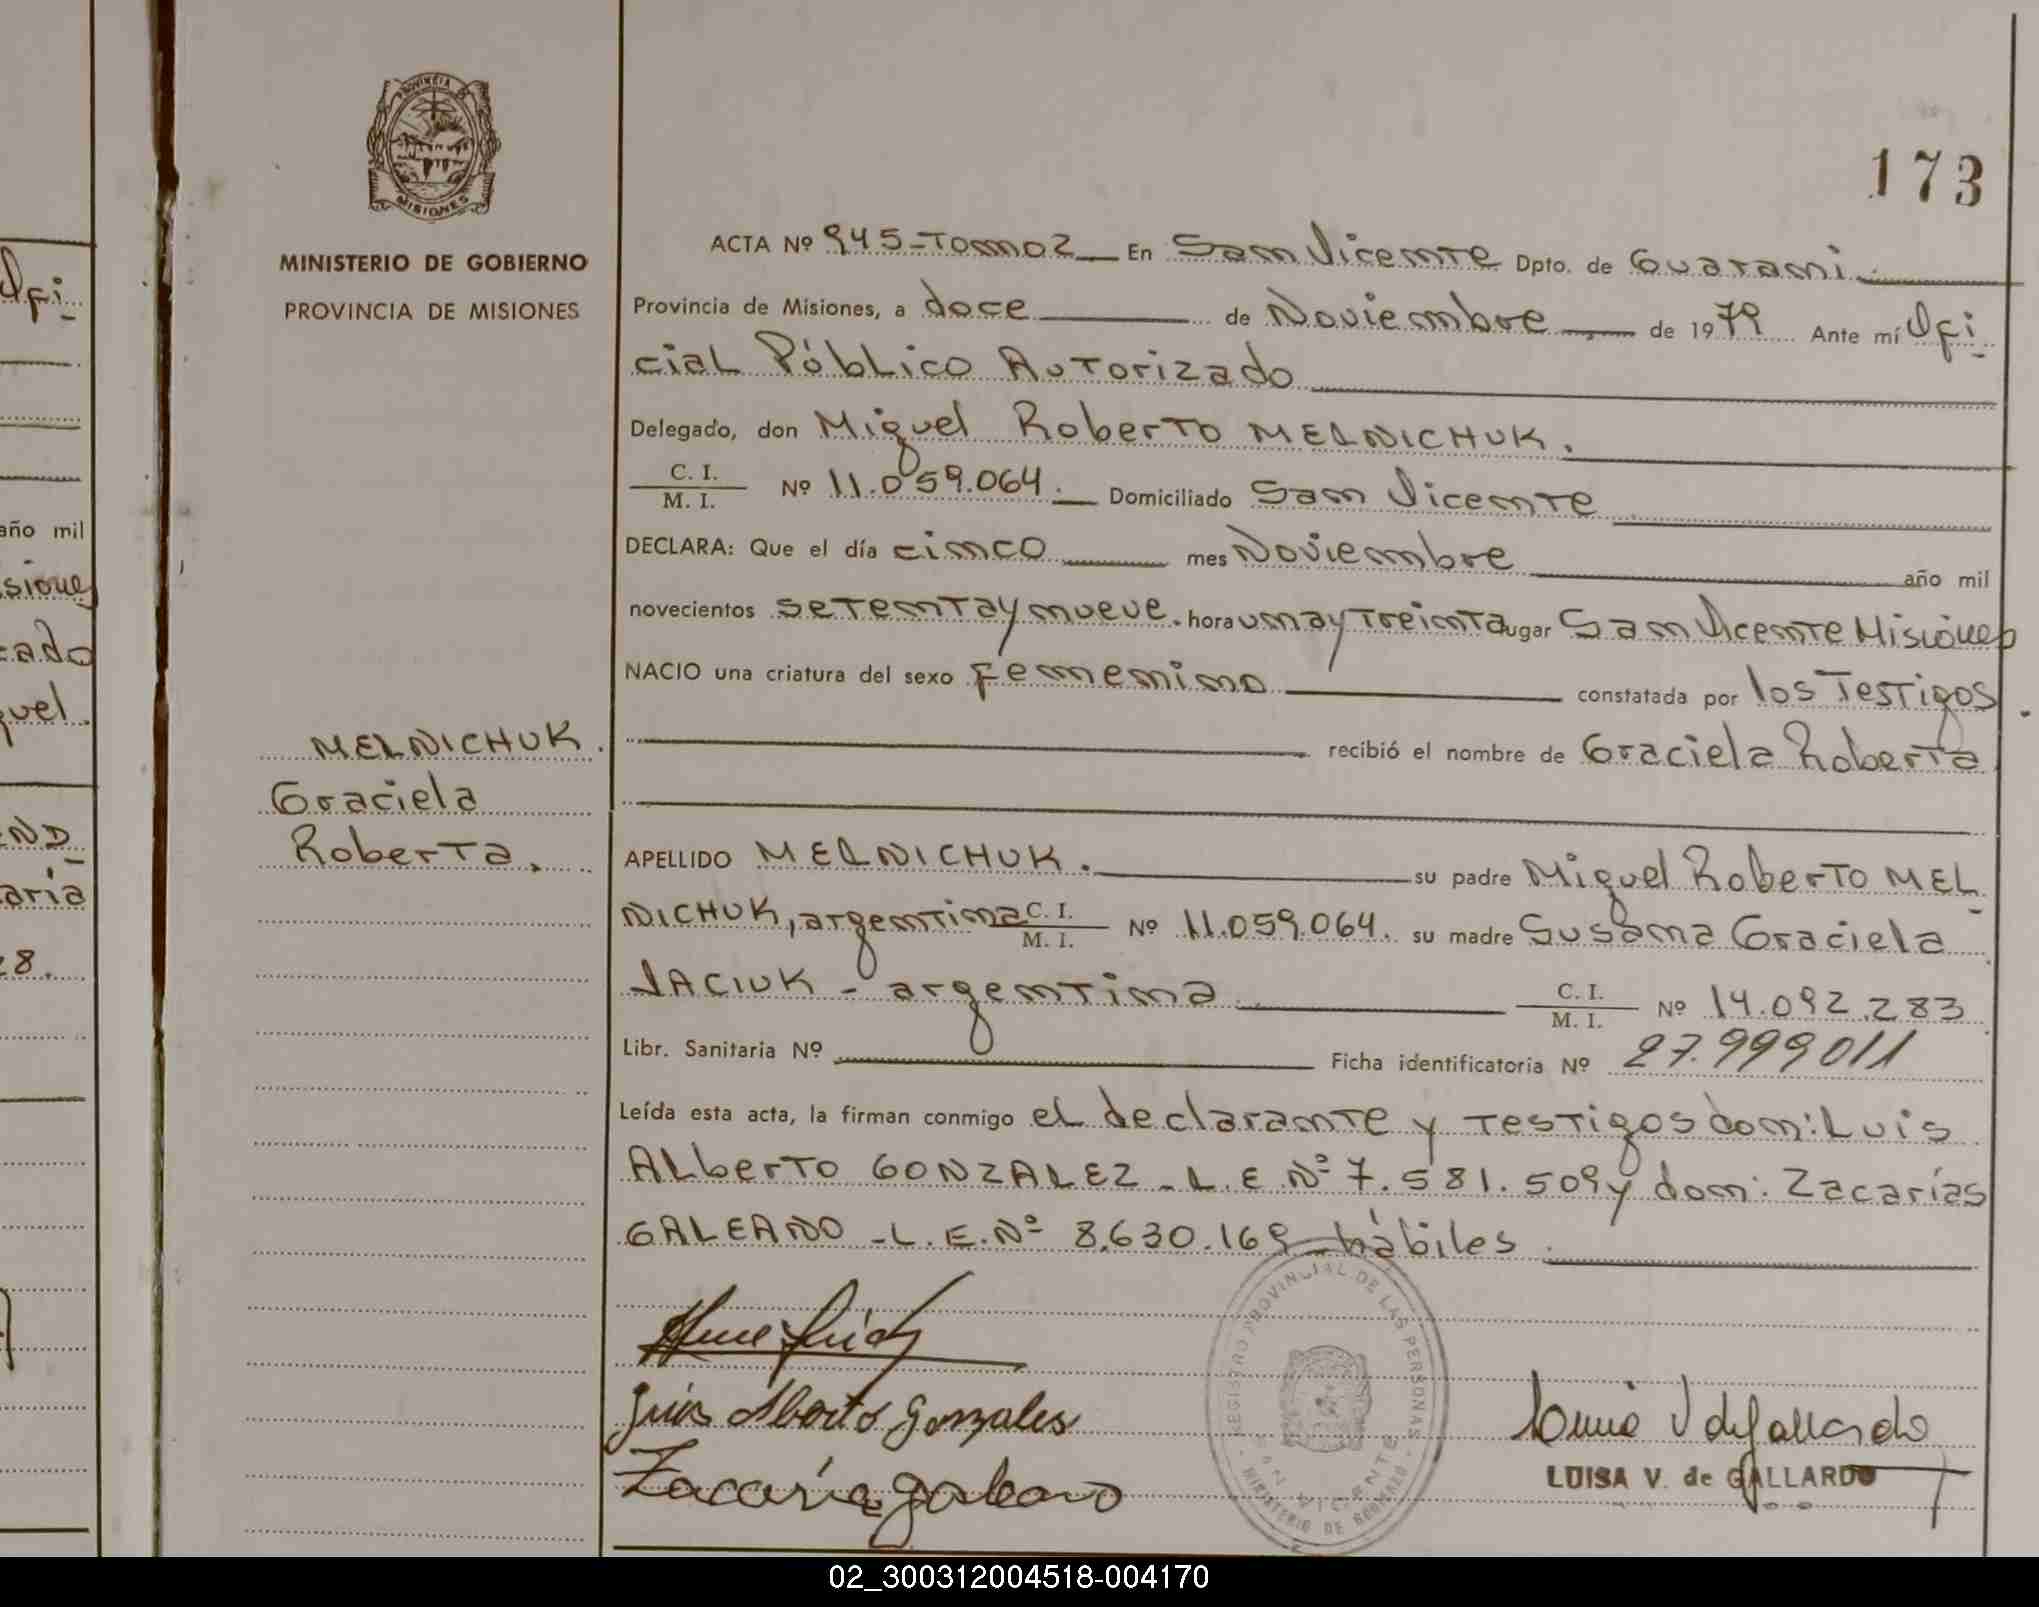 PROVINCIA DE
MISIONES
MINISTERIO DE GOBIERNO
PROVINCIA DE MISIONES
173
ACTA Nº 945-Tomo 2 En San Vicente Dpto. de Guaraní
Provincia de Misiones, a doce de Noviembre de 1979 Ante mí Ofi
cial Público Autorizado
Delegado, don Miguel Roberto MELNICHUK.
C. I.
M. I. Nº 11.059.064. Domiciliado San Vicente
DECLARA: Que el día cinco mes Noviembre año mil
novecientos setenta y nueve. hora una y treinta lugar San Vicente Misiones
NACIO una criatura del sexo femenino constatada por los Testigos.
recibió el nombre de Graciela Roberta
MELNICHUK.
Graciela
Roberta.
APELLIDO MELNICHUK. su padre Miguel Roberto MEL
NICHUK, argentina C. I.
M. I. Nº 11.059.064. su madre Susana Graciela
JACIUK - argentina C. I.
M. I. Nº 14.092.283
Libr. Sanitaria Nº Ficha identificatoria Nº 27.999011
Leída esta acta, la firman conmigo el declarante y Testigos don: Luis
Alberto GONZALEZ - L.E Nº 7.581.509 y don: Zacarías
GALEANO - L.E.Nº 8.630.169 - hábiles
Luis Alberto Gonzales
Zacarias galeano
REGISTRO PROVINCIAL DE LAS PERSONAS
SAN VICENTE
MINISTERIO DE GOBIERNO
Luisa V de Gallardo
LUISA V. de GALLARDO
Ofi
año mil
siones
cado
quel.
END
aria
28.
02_300312004518-004170